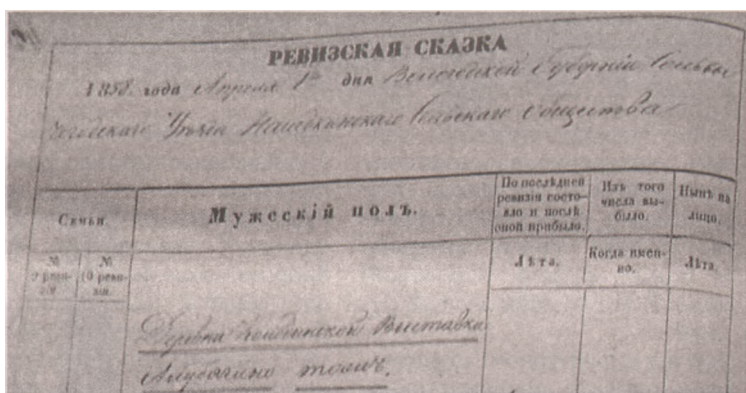 РЕВИЗСКАЯ СКАЗКА
1858. года Апреля 1го дня Вологодской Губерніи Сольвы
чегодскаго Уѣзда Сельскаго общества
Семьи.
Мужескій полъ.
По послѣдней
ревизіи состо-
яло и послѣ
оной прибыло.
Изъ того
числа вы-
было.
Нынѣ на
лицо.
№
9 реви-
зіи.
№
10 реви-
зіи.
Лѣта.
Когда имен-
но.
Лѣта.
Деревни Выставка
тожъ.